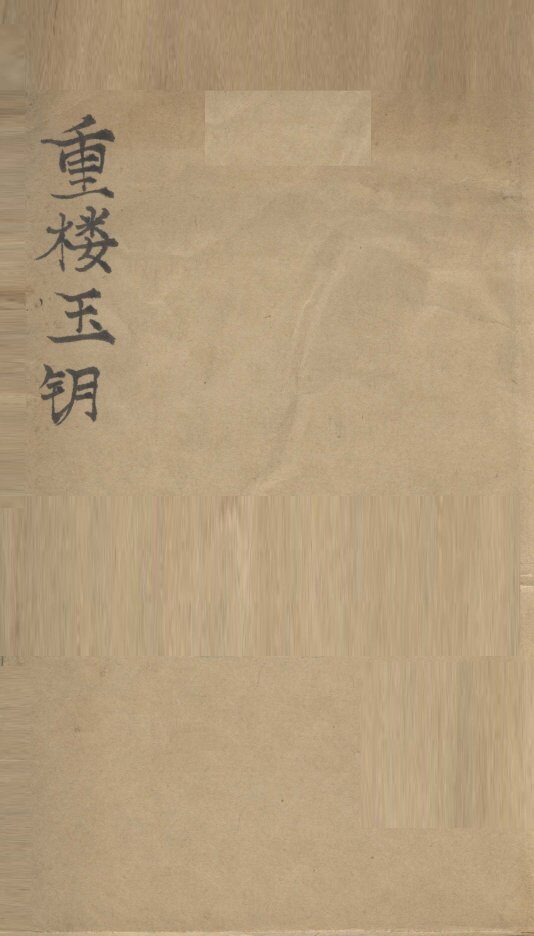 重楼玉钥